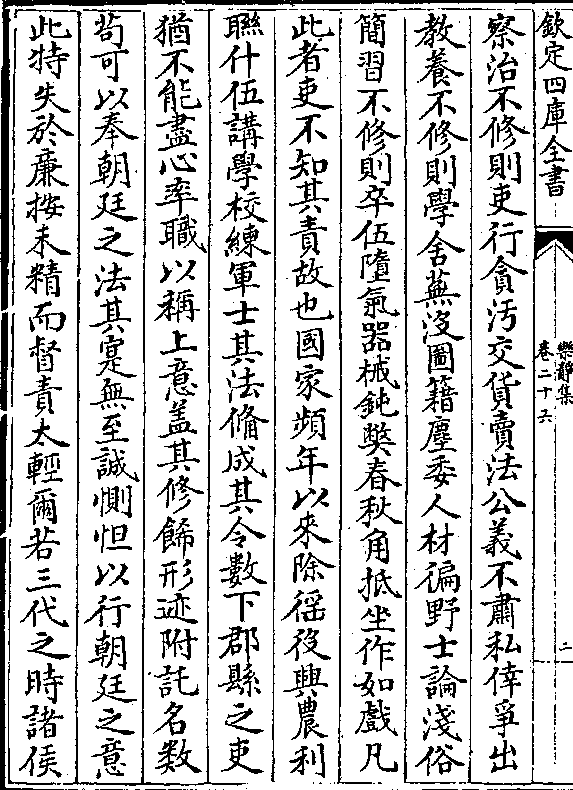 欽定四庫全書
樂靜集
卷二十六
二
察治不修則吏行貪汚交貨賣法公義不肅私倖爭出
教養不修則學舍蕪沒圖籍塵委人材徧野士論淺俗
簡習不修則卒伍墮氣器械鈍獘春秋角抵坐作如戲凡
此者吏不知其責故也國家頻年以來除徭役興農利
聯什伍講學校練軍士其法備成其令數下郡縣之吏
猶不能盡心率職以稱上意盖其修餙形迹附託名數
茍可以奉朝廷之法其寔無至誠惻怛以行朝廷之意
此特失於亷按未精而督責太輕爾若三代之時諸侯